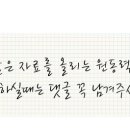 은 자료를 올리는 원동력
하실때는 댓글 꼭 남겨주